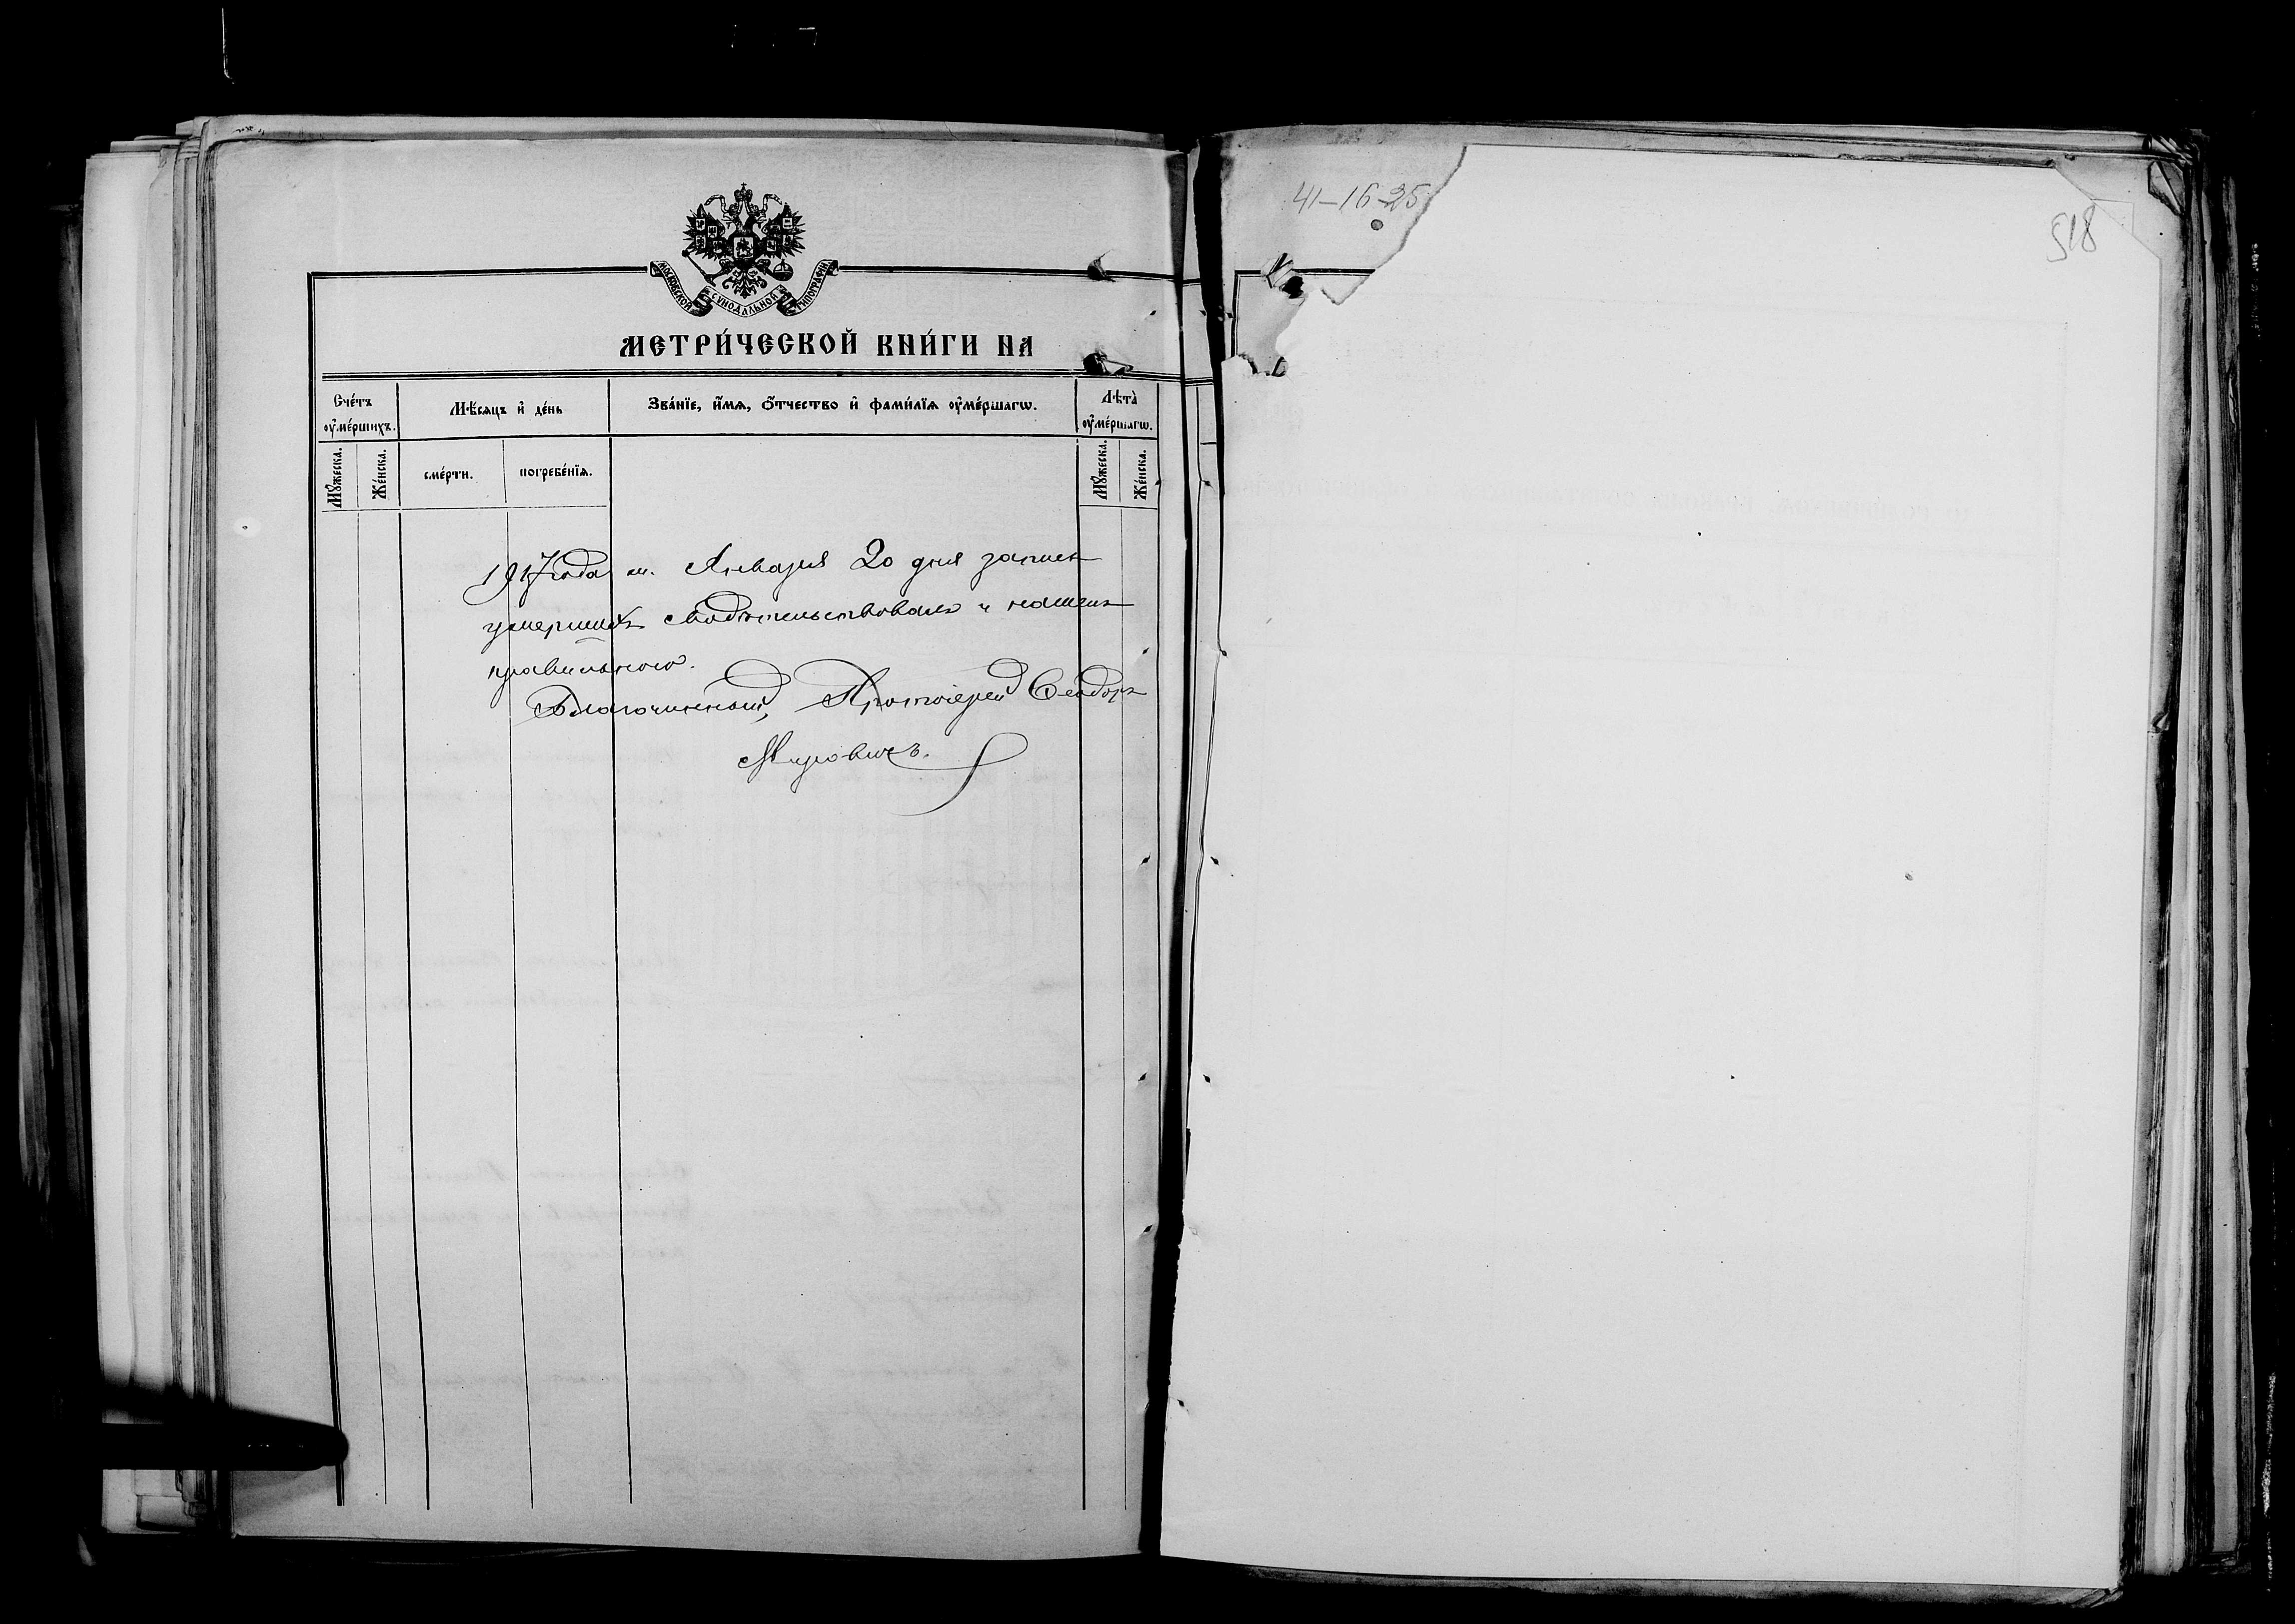 МОСКОВСКОЙ СѴНОДАЛЬНОЙ ТИПОГРАФІИ
МЕТРИ́ЧЕСКОЙ КНИ́ГИ НА
Сче́тъ оу҆ме́ршихъ.
Мѣ́сяцъ и҆ де́нь
Зва́нїе, и҆́мѧ, ѻ҆́тчество и҆ фами́лїѧ оу҆ме́ршагѡ.
Лѣ́та оу҆ме́ршагѡ.
Мꙋ́жеска.
Же́нска.
сме́рти.
погребе́нїѧ.
Мꙋ́жеска.
Же́нска.
1917 года м. Января 20 дня запись
умершихъ свидѣтельствовалъ и нашелъ
правильною.
Благочинный, Протоіерей Ѳеодоръ
41-16-25
518